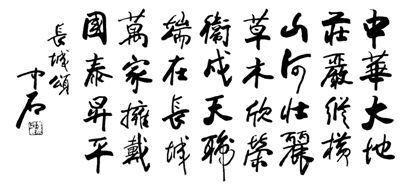 中華大地
莊嚴縱橫
山河壯麗
草木欣榮
衛戍天職
端在長城
萬家擁戴
國泰昇平
長城頌
中石